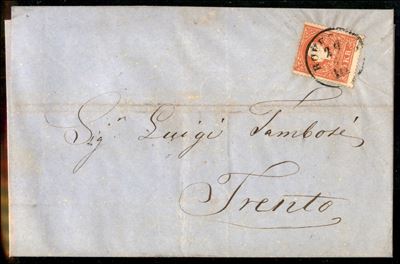 Sig.r Luigi Tambosi
Trento